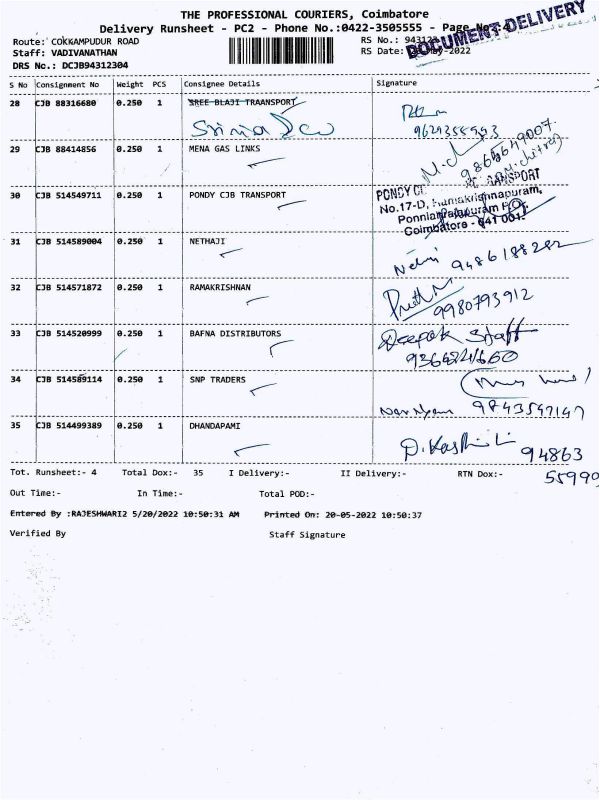 THE PROFESSIONAL COURIERS, Coimbatore
Delivery Runsheet - PC2 - Phone No.:0422-3505555 - Page No: 4
DOCUMENT DELIVERY
Route: COKKAMPUDUR ROAD
RS No.:
Staff: VADIVANATHAN
RS Date: -2022
DRS No.: DCJB94312304
S No Consignment No Weight PCS Consignee Details Signature
28 CJB 88316680 0.250 1 SREE BLAJI TRAANSPORT
29 CJB 88414856 0.250 1 MENA GAS LINKS
9865649007
30 CJB 514549711 0.250 1 PONDY CJB TRANSPORT
No.17-D, Ramakrishnapuram,
Ponniarajapuram PO,
Coimbatore - 641 001.
31 CJB 514589004 0.250 1 NETHAJI
9486188282
32 CJB 514571872 0.250 1 RAMAKRISHNAN
9980793912
33 CJB 514520999 0.250 1 BAFNA DISTRIBUTORS
Deepak Staff
34 CJB 514589114 0.250 1 SNP TRADERS
9843547147
35 CJB 514499389 0.250 1 DHANDAPAMI
94863
55990
Tot. Runsheet:- 4 Total Dox:- 35 I Delivery:- II Delivery:- RTN Dox:-
Out Time:- In Time:- Total POD:-
Entered By :RAJESHWARI2 5/20/2022 10:50:31 AM Printed On: 20-05-2022 10:50:37
Verified By Staff Signature